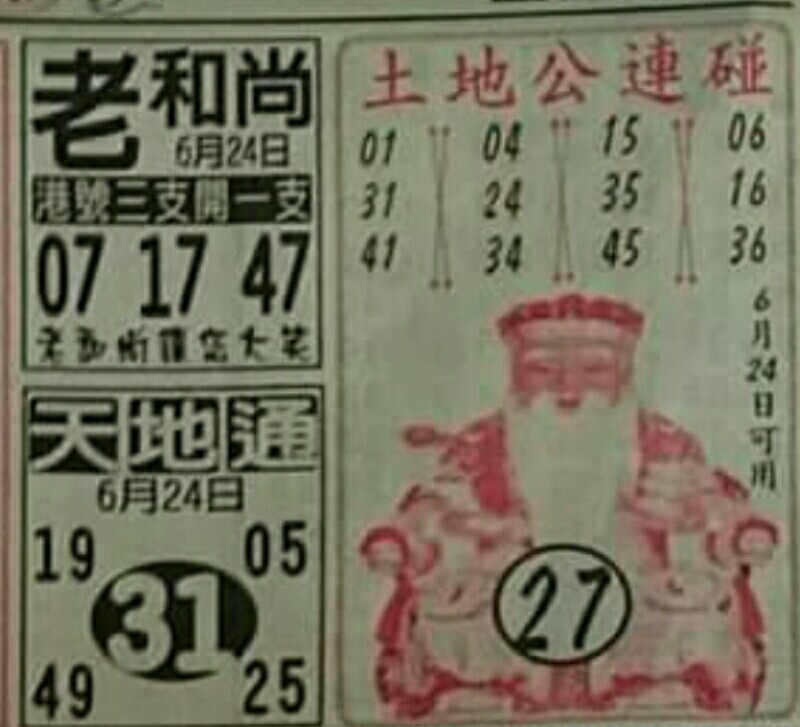 老和尚
6月24日
港號三支開一支
07 17 47
天地通
6月24日
19 05
31
49 25
土地公連碰
01 04 15 06
31 24 35 16
41 34 45 36
6月24日可用
27